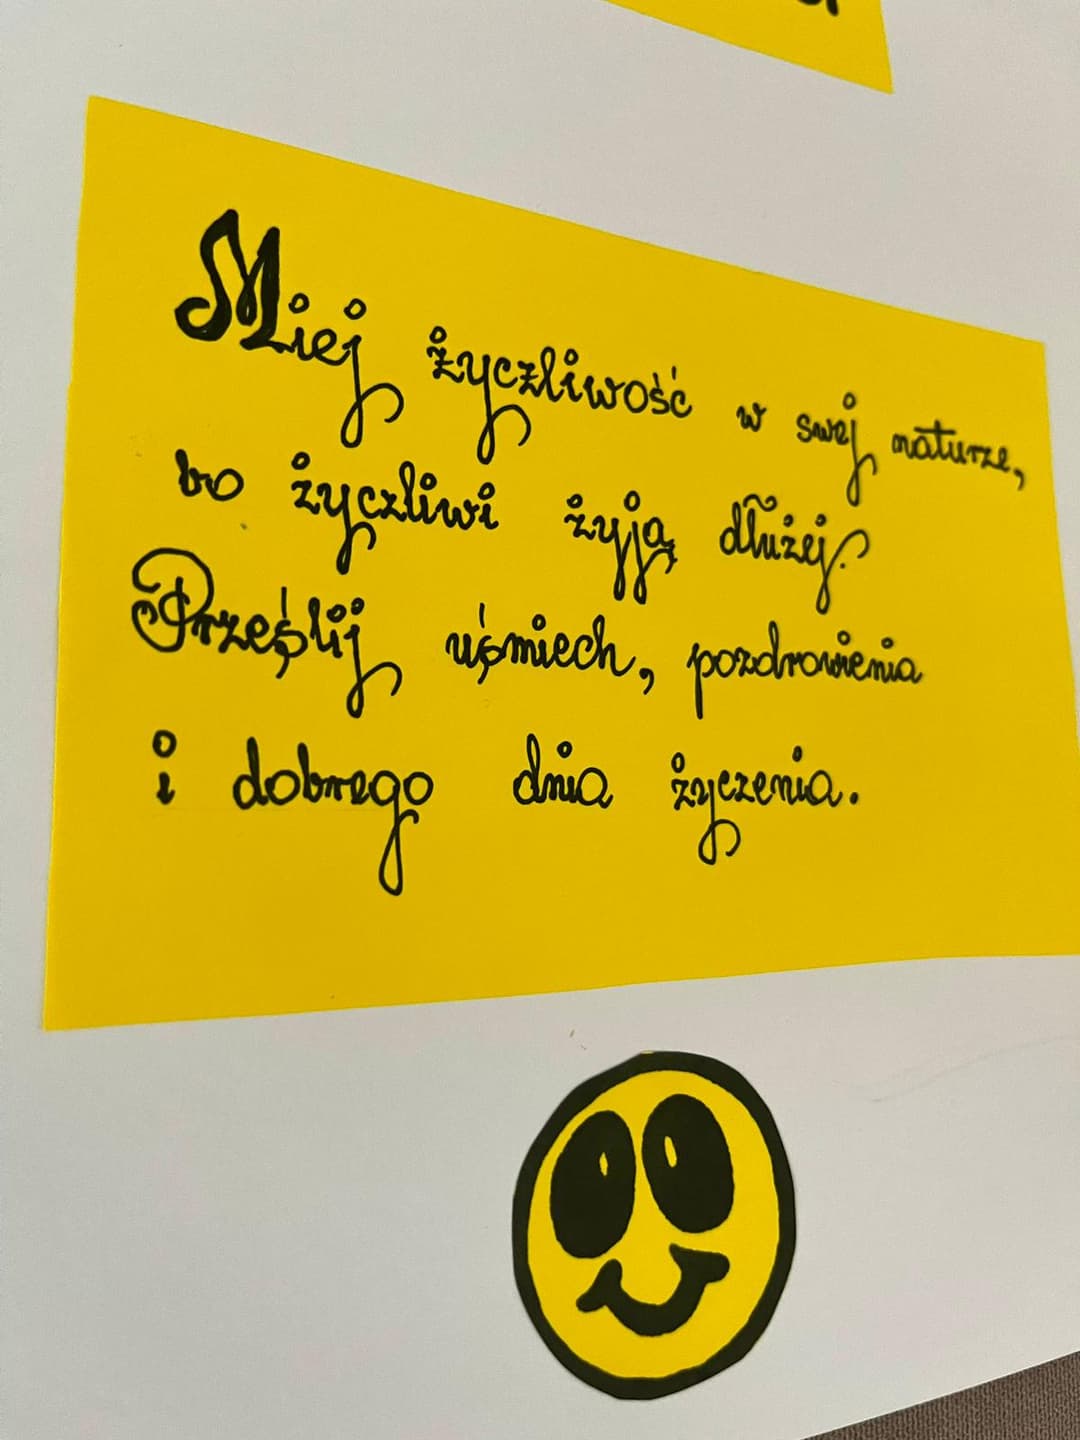 Miej życzliwość w swej naturze,
bo życzliwi żyją dłużej.
Prześlij uśmiech, pozdrowienia
i dobrego dnia życzenia.